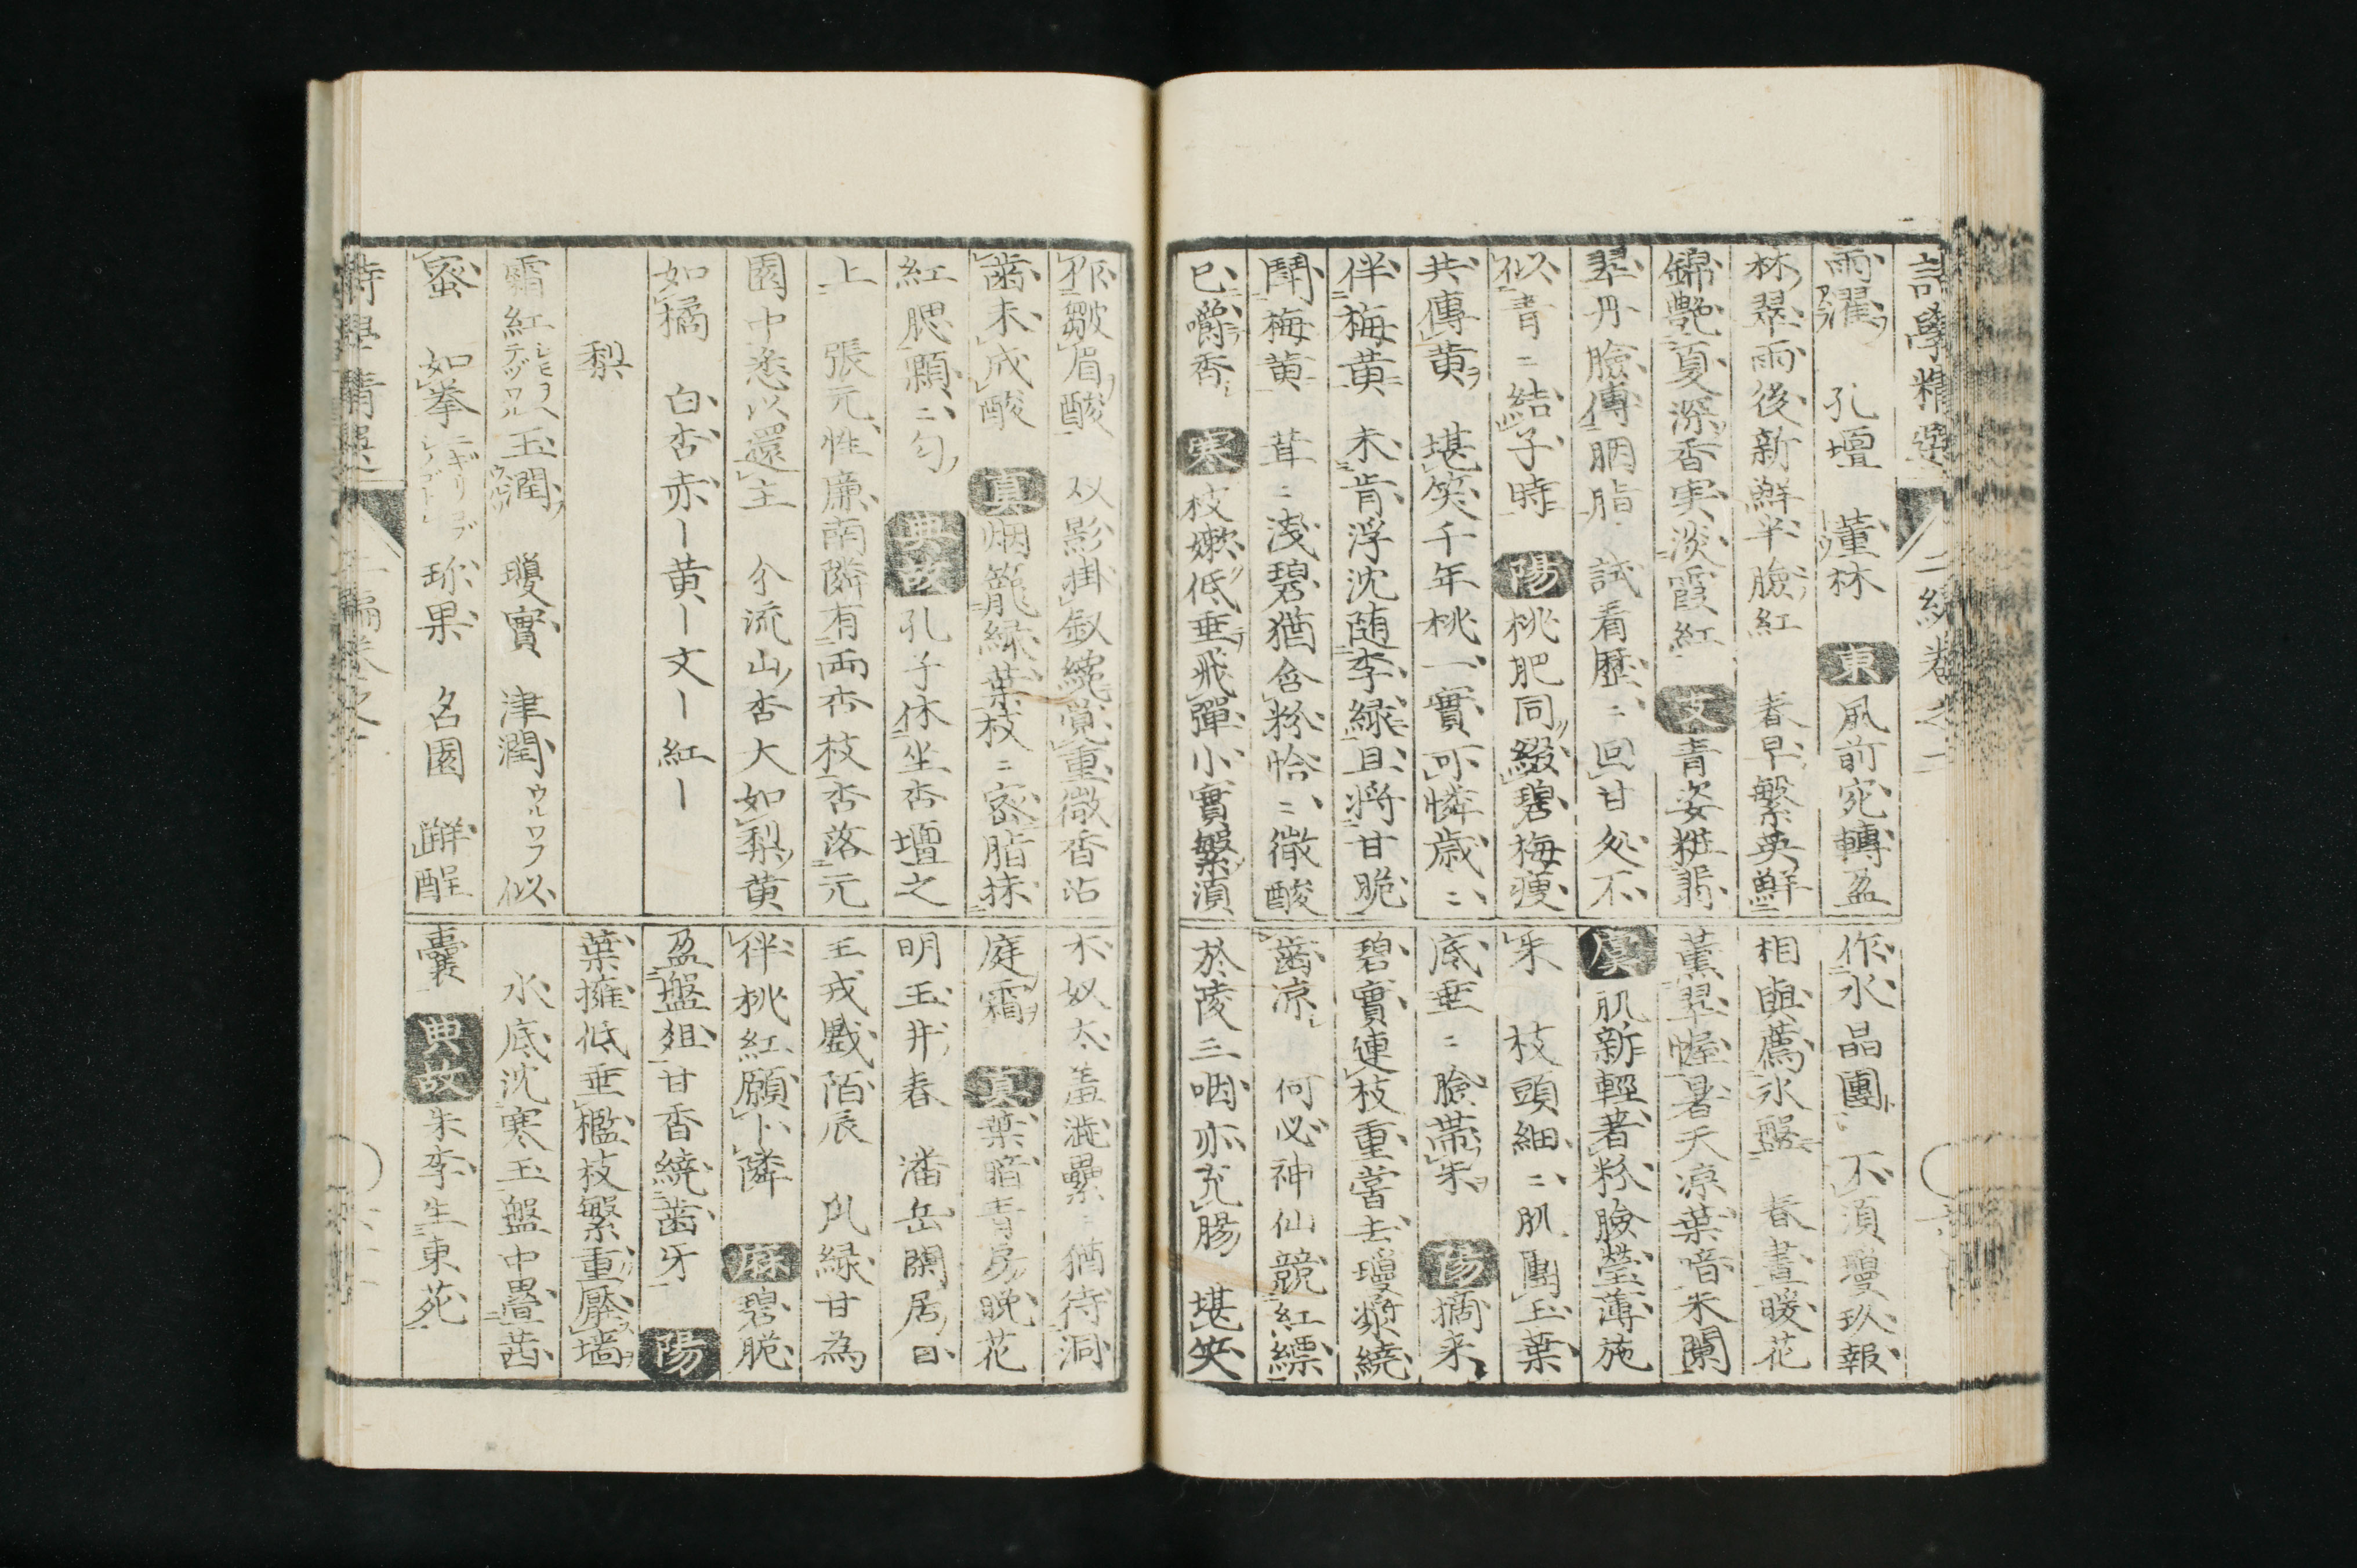 詩學精選 二編卷之一
雨濯 孔壇 董林 東 風前宛轉盈
林翠雨後新鮮半臉紅 春早繁英鮮
錦艶夏深香実淡霞紅 支 青姿粧翡
翠丹臉傳胭脂 試看歴〻回甘処不
似青〻結子時 陽 桃肥同綴碧梅痩
共傳黄 堪笑千年桃一實可憐歳〻
伴梅黄 未肯浮沈随李緑且将甘脆
鬪梅黄 茸〻淺碧猶含粉恰〻微酸
已嚼香 寒 枝嫩低垂飛彈小實繁須
作水晶團 不須瓊玖報
相與薦氷盤 春晝暖花
薫翠幄暑天凉葉暗朱闌
虞 肌新輕著粉臉瑩薄施
朱 枝頭細〻肌團玉葉
底垂〻臉帯朱 陽 摘来
碧實連枝重嘗去瓊漿繞
歯凉 何必神仙競紅縹
於陵三咽亦充腸 堪笑
作皺眉酸 双影掛釵纔覚重微香沾
歯未成酸 真 烟籠緑葉枝〻密脂抹
紅腮顆〻匀 典故 孔子休坐杏壇之
上 張元性廉南隣有両杏枝杏落元
園中悉以還主 分流山杏大如梨黄
如橘 白杏赤ー黄ー文ー紅ー
梨
霜紅 玉潤 瓊實 津潤ウルワフ 似
蜜 如拳 珎果 名園 觧酲
不奴太羞澁纍〻猶待洞
庭霜 真 葉暗青房晩花
明玉井春 潘岳閑居日
王戎戯陌辰 凡緑甘為
伴桃紅願卜隣 麻 碧脆
盈盤俎甘香繞歯牙 陽
葉擁低垂檻枝繁重壓墻
水底沈寒玉盤中畳茜
囊 典故 朱李生東苑
詩學精選 二編卷之一